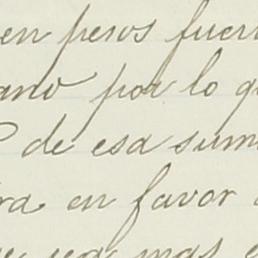 en pesos fuer
ano por lo q
de esa sum
ra en favor
ue sea mas